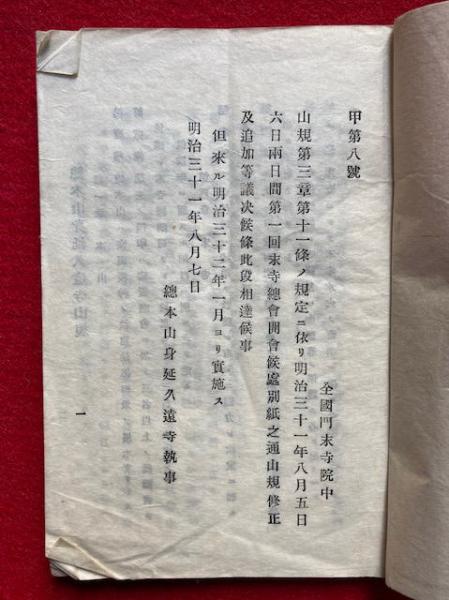 甲第八號
全國門末寺院中
山規第三章第十一條ノ規定ニ依リ明治三十一年八月五日
六日兩日間第一回末寺總會開會候處別紙之通山規修正
及追加等議决候條此段相達候事
但來ル明治三十二年一月ヨリ實施ス
明治三十一年八月七日
總本山身延久遠寺執事
一